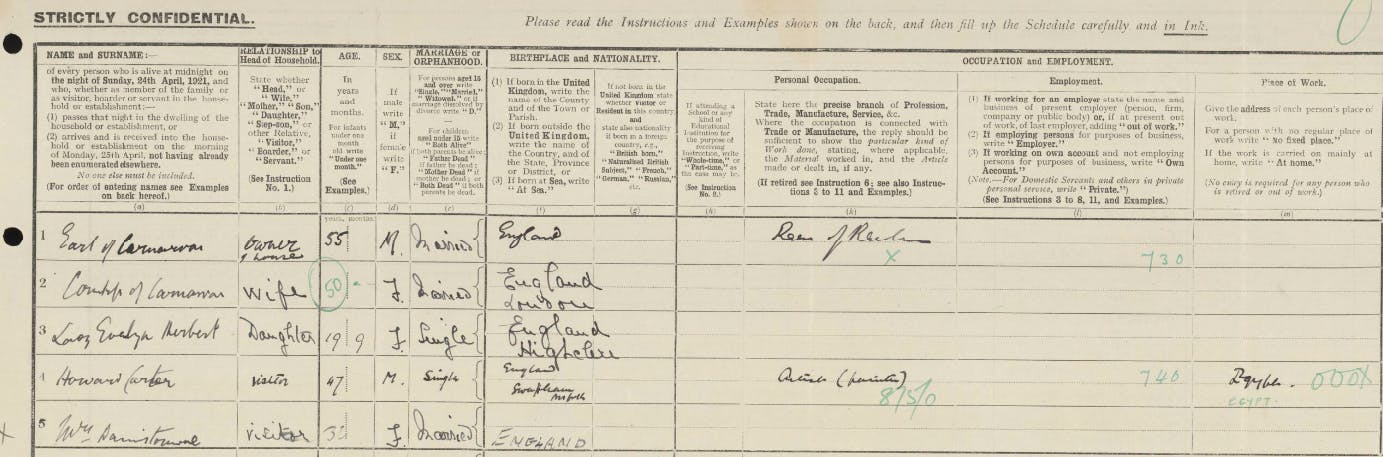 STRICTLY CONFIDENTIAL.
Please read the Instructions and Examples shown on the back, and then fill up the Schedule carefully and in Ink.
NAME and SURNAME:—
of every person who is alive at midnight on
the night of Sunday, 24th April, 1921, and
who, whether as member of the family or
as visitor, boarder or servant in the house-
hold or establishment:—
(1) passes that night in the dwelling of the
household or establishment, or
(2) arrives and is received into the house-
hold or establishment on the morning
of Monday, 25th April, not having already
been enumerated elsewhere.
No one else must be included.
(For order of entering names see Examples
on back hereof.)
(a)
RELATIONSHIP to
Head of Household.
State whether
"Head," or
"Wife,"
"Mother," "Son,"
"Daughter,"
"Step-son," or
other Relative,
"Visitor,"
"Boarder," or
"Servant."
(See Instruction
No. 1.)
(b)
AGE.
In
years
and
months.
For infants
under one
month old
write "Under
one month."
(See
Examples.)
(c)
years, months.
SEX.
If
male
write
"M,"
if
female
write
"F."
(d)
MARRIAGE or
ORPHANHOOD.
For persons aged 15
and over write
"Single," "Married,"
"Widowed," or if
marriage dissolved by
divorce write "D."
For children
aged under 15 write
"Both Alive"
if both parents be alive;
"Father Dead" if
father be dead;
"Mother Dead" if
mother be dead; or
"Both Dead" if both
parents be dead.
(e)
BIRTHPLACE and NATIONALITY.
(1) If born in the United
Kingdom, write the
name of the County
and of the Town or
Parish.
(2) If born outside the
United Kingdom,
write the name of
the Country, and of
the State, Province
or District, or
(3) If born at Sea, write
"At Sea."
(f)
If not born in the
United Kingdom state
whether Visitor or
Resident in this country,
and
state also nationality
if born in a foreign
country, e.g.,
"British born,"
"Naturalised British
Subject," "French,"
"German," "Russian,"
etc.
(g)
OCCUPATION and EMPLOYMENT.
If attending a
School or any
kind of
Educational
Institution for
the purpose of
receiving
Instruction, write
"Whole-time," or
"Part-time," as
the case may be.
(See Instruction
No. 2.)
(h)
Personal Occupation.
State here the precise branch of Profession,
Trade, Manufacture, Service, &c.
Where the occupation is connected with
Trade or Manufacture, the reply should be
sufficient to show the particular kind of
Work done, stating, where applicable,
the Material worked in, and the Article
made or dealt in, if any.
(If retired see Instruction 6; see also Instruc-
tions 3 to 11 and Examples.)
(k)
Employment.
(1) If working for an employer state the name and
business of present employer (person, firm,
company or public body) or, if at present out
of work, of last employer, adding "out of work."
(2) If employing persons for purposes of business,
write "Employer."
(3) If working on own account and not employing
persons for purposes of business, write "Own
Account."
(Note.—For Domestic Servants and others in private
personal service, write "Private.")
(See Instructions 3 to 8, 11, and Examples.)
(l)
Place of Work.
Give the address of each person's place of
work.
For a person with no regular place of
work write "No fixed place."
If the work is carried on mainly at
home, write "At home."
(No entry is required for any person who
is retired or out of work.)
(m)
1 Earl of Carnarvon owner of house 55 M. Married England X 730
2 Countess of Carnarvon Wife 50 F. Married England London
3 Lady Evelyn Herbert Daughter 19 9 F. Single England Highclere
4 Howard Carter Visitor 47 M. Single England Swaffham Norfolk Artist (painter) 875/0 740 Egypt. 000X
EGYPT.
5 Mrs Visitor F. Married ENGLAND
X